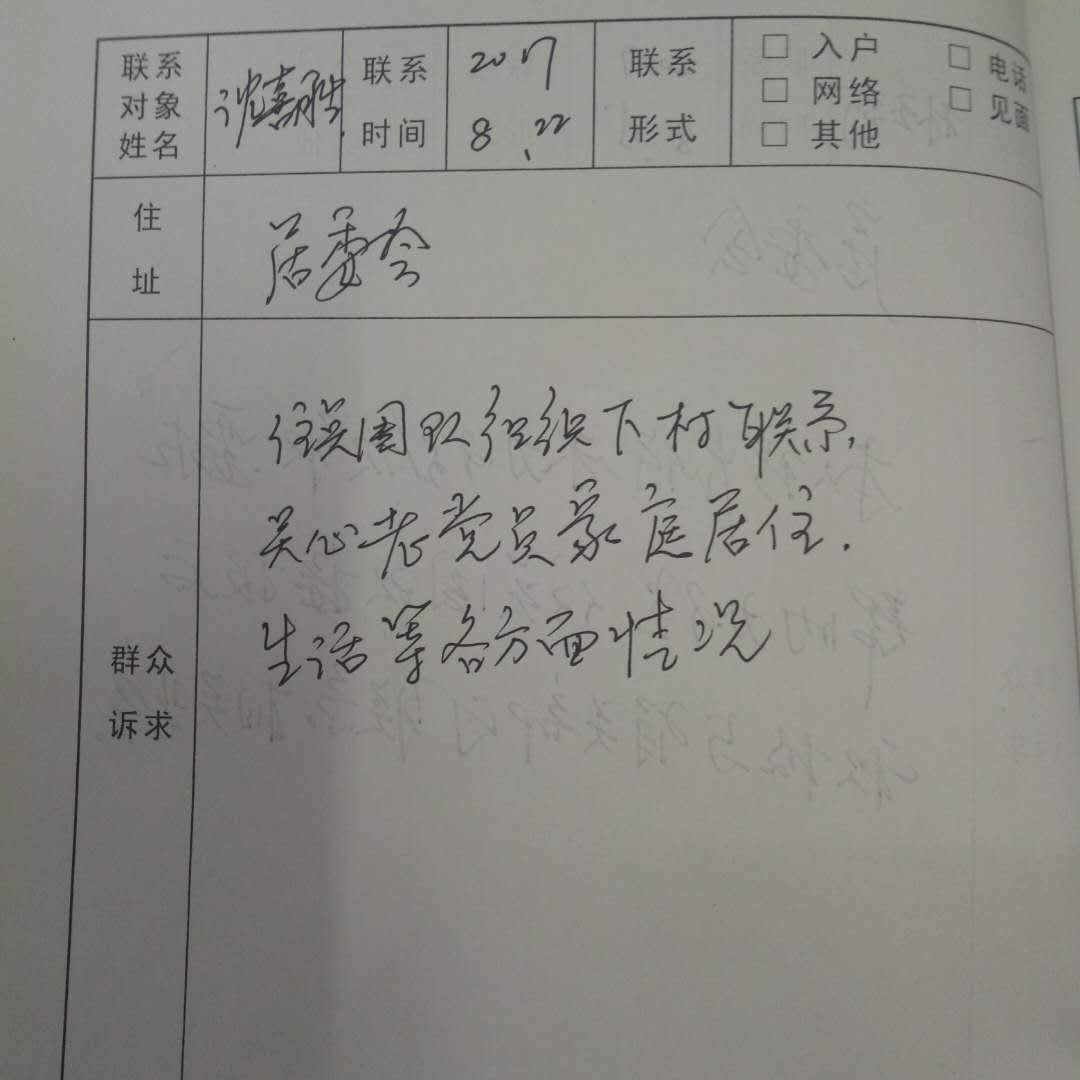 联系对象姓名 沈嘉胜 联系时间 2017 8.22 联系形式 □ 入户 □ 电话 □ 网络 □ 见面 □ 其他
住址 居委会
群众诉求
团队组织下村联系,
关心老党员家庭居住.
生活等各方面情况